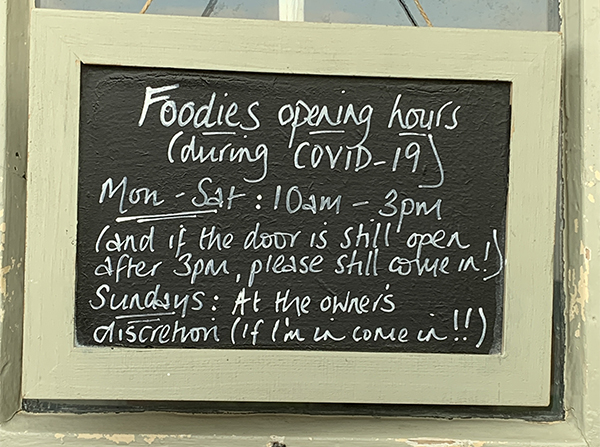 Foodies opening hours
(during COVID-19)
Mon - Sat : 10am - 3pm
(and if the door is still open
after 3pm, please still come in!)
Sundays : At the owner's
discretion (if I'm in come in!!)